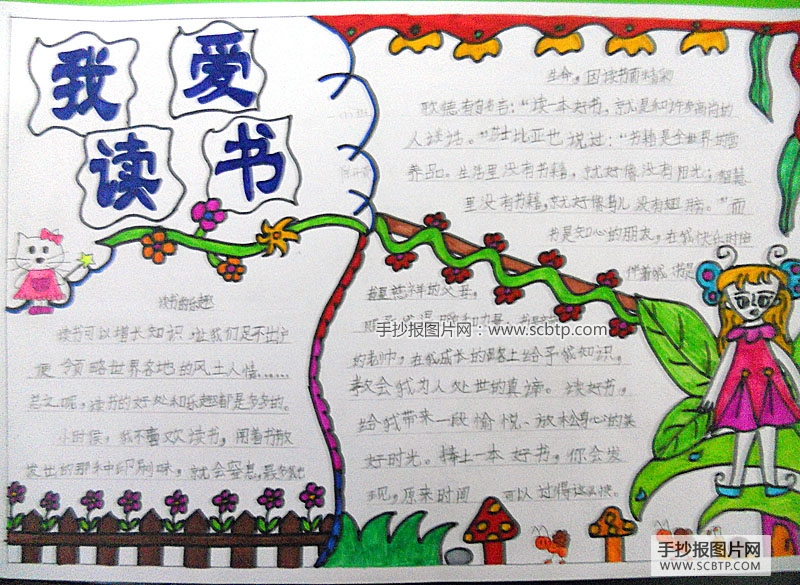 我爱
读书
读书的乐趣
读书可以增长知识,让我们足不出户
便领略世界各地的风土人情……
总之呢,读书的好处和乐趣都是多多的。
小时候,我不喜欢读书,闻着书散
发出的那种印刷味,就会窒息,最多就
生命,因读书而精彩
歌德有句名言:"读一本好书,就是和许多高尚的
人谈话。"莎士比亚也说过:"书籍是全世界的营
养品。生活里没有书籍,就好像没有阳光;智慧
里没有书籍,就好像鸟儿没有翅膀。"而
书是知心的朋友,在我快乐时
伴着我,书是
慈祥的父母,
的老师,在我成长的路上给予我知识,
教会我为人处世的真谛。读好书,
给我带来一段愉悦、放松身心的美
好时光。捧上一本好书,你会发
现,原来时间可以过得这么快。
手抄报图片网:www.scbtp.com
手抄报图片网
WWW.SCBTP.COM